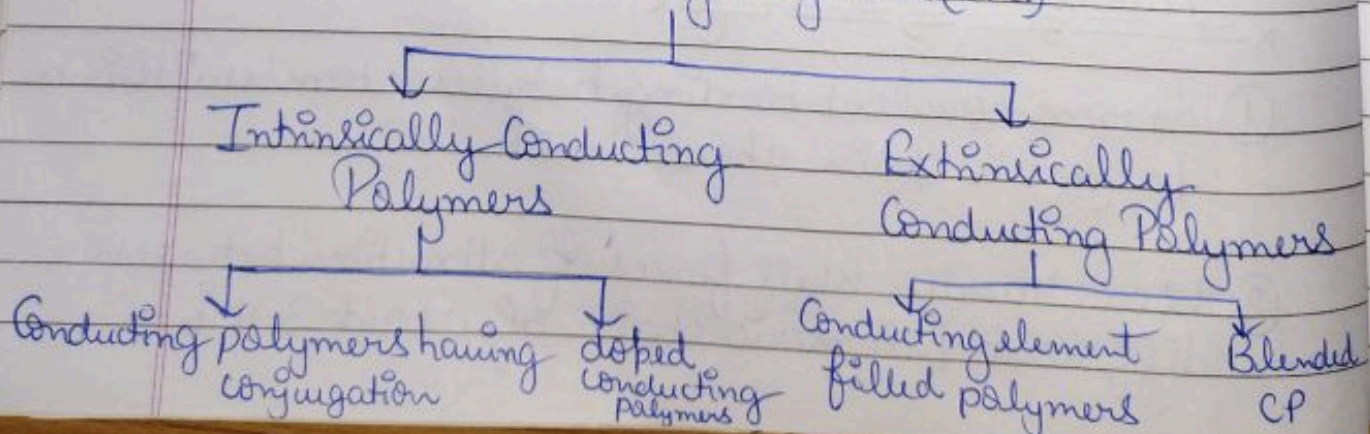 Intrinsically Conducting
Polymers
Extrinsically
Conducting Polymers
Conducting polymers having
conjugation
doped
conducting
polymers
Conducting element
filled polymers
Blended
CP